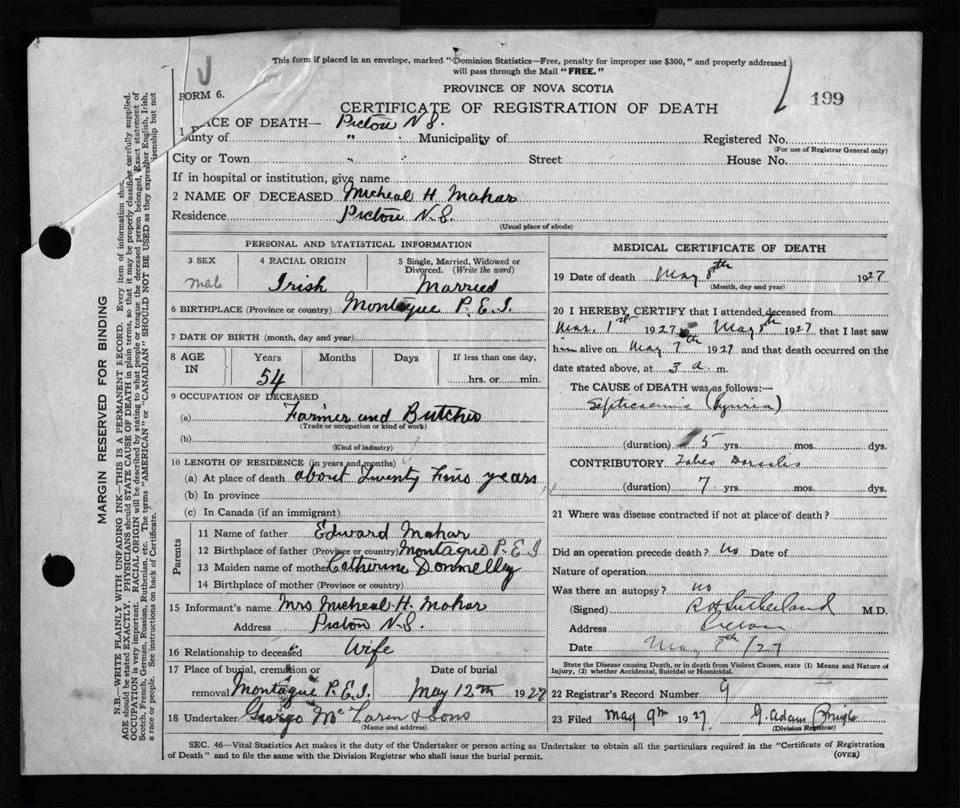 This form if placed in an envelope, marked "Dominion Statistics—Free, penalty for improper use $300," and properly addressed
will pass through the Mail "FREE."
PROVINCE OF NOVA SCOTIA
FORM 6.
CERTIFICATE OF REGISTRATION OF DEATH
199
1 PLACE OF DEATH— Pictou N.S.
County of " Municipality of Registered No.
(For use of Registrar General only)
City or Town " Street House No.
If in hospital or institution, give name
2 NAME OF DECEASED Micheal H Mahar
Residence Pictou N.S.
(Usual place of abode)
PERSONAL AND STATISTICAL INFORMATION
3 SEX 4 RACIAL ORIGIN 5 Single, Married, Widowed or
Divorced. (Write the word)
Male Irish Married
6 BIRTHPLACE (Province or country) Montague P.E.I.
7 DATE OF BIRTH (month, day and year)
8 AGE IN Years Months Days If less than one day,
54 hrs. or min.
9 OCCUPATION OF DECEASED
(a) Farmer and Butcher
(Trade or occupation or kind of work)
(b)
(Kind of industry)
10 LENGTH OF RESIDENCE (in years and months)
(a) At place of death about Twenty years
(b) In province
(c) In Canada (if an immigrant)
Parents
11 Name of father Edward Mahar
12 Birthplace of father (Province or country) Montague P.E.I
13 Maiden name of mother Catherine Donnelly
14 Birthplace of mother (Province or country)
15 Informant's name Mrs Micheal H. Mahar
Address Pictou N.S.
16 Relationship to deceased Wife
17 Place of burial, cremation or Date of burial
removal Montague P.E.I. May 12th 1927
18 Undertaker George McLaren & Sons
(Name and address)
MEDICAL CERTIFICATE OF DEATH
19 Date of death May 8th 1927
(Month, day and year)
20 I HEREBY CERTIFY that I attended deceased from
Mar. 1st 1927 to May 8th 1927 that I last saw
him alive on May 7th 1927 and that death occurred on the
date stated above, at 3 a m.
The CAUSE of DEATH was as follows:—
Septicaemia
(duration) 5 yrs. mos. dys.
CONTRIBUTORY Tabes Dorsalis
(duration) 7 yrs. mos. dys.
21 Where was disease contracted if not at place of death?
Did an operation precede death? no Date of
Nature of operation
Was there an autopsy? no
(Signed) R H Sutherland M.D.
Address Pictou
Date May /27
State the Disease causing Death, or in death from Violent Causes, state (1) Means and Nature of
Injury, (2) whether Accidental, Suicidal or Homicidal.
22 Registrar's Record Number 9
23 Filed May 9th 1927 G. Adam
(Division Registrar)
SEC. 46—Vital Statistics Act makes it the duty of the Undertaker or person acting as Undertaker to obtain all the particulars required in the "Certificate of Registration
of Death" and to file the same with the Division Registrar who shall issue the burial permit.
(OVER)
MARGIN RESERVED FOR BINDING
N.B.—WRITE PLAINLY WITH UNFADING INK—THIS IS A PERMANENT RECORD. Every item of information should be carefully supplied.
AGE should be stated EXACTLY. PHYSICIANS should STATE CAUSE OF DEATH in plain terms, so that it may be properly classified. Exact statement of
OCCUPATION is very important. RACIAL ORIGIN will be described by stating to what people or tongue the deceased person belonged, whether English, Irish,
Scotch, French, German, Russian, Ruthenian, etc. The terms "AMERICAN" or "CANADIAN" SHOULD NOT BE USED as they express citizenship but not
a race or people. See instructions on back of Certificate.